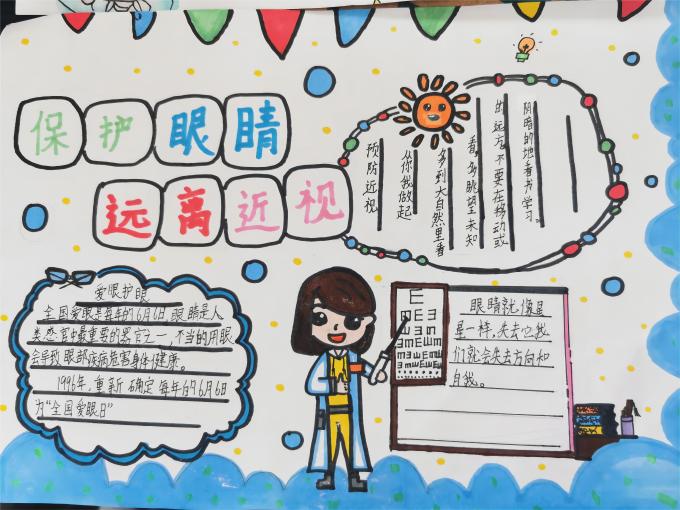 保护眼睛
远离近视
预防近视
从你我做起
多到大自然里看
看,多眺望未知
的远方,不要在移动或
阴暗的地看书学习。
爱眼护眼
全国爱眼是每年的6月6日,眼睛是人
类感官中最重要的器官之一,不当的用眼
会导致眼部疾病危害身体健康。
1996年,重新确定每年的6月6日
为“全国爱眼日”
眼睛就像星
星一样,失去它我
们就会失去方向和
自我。